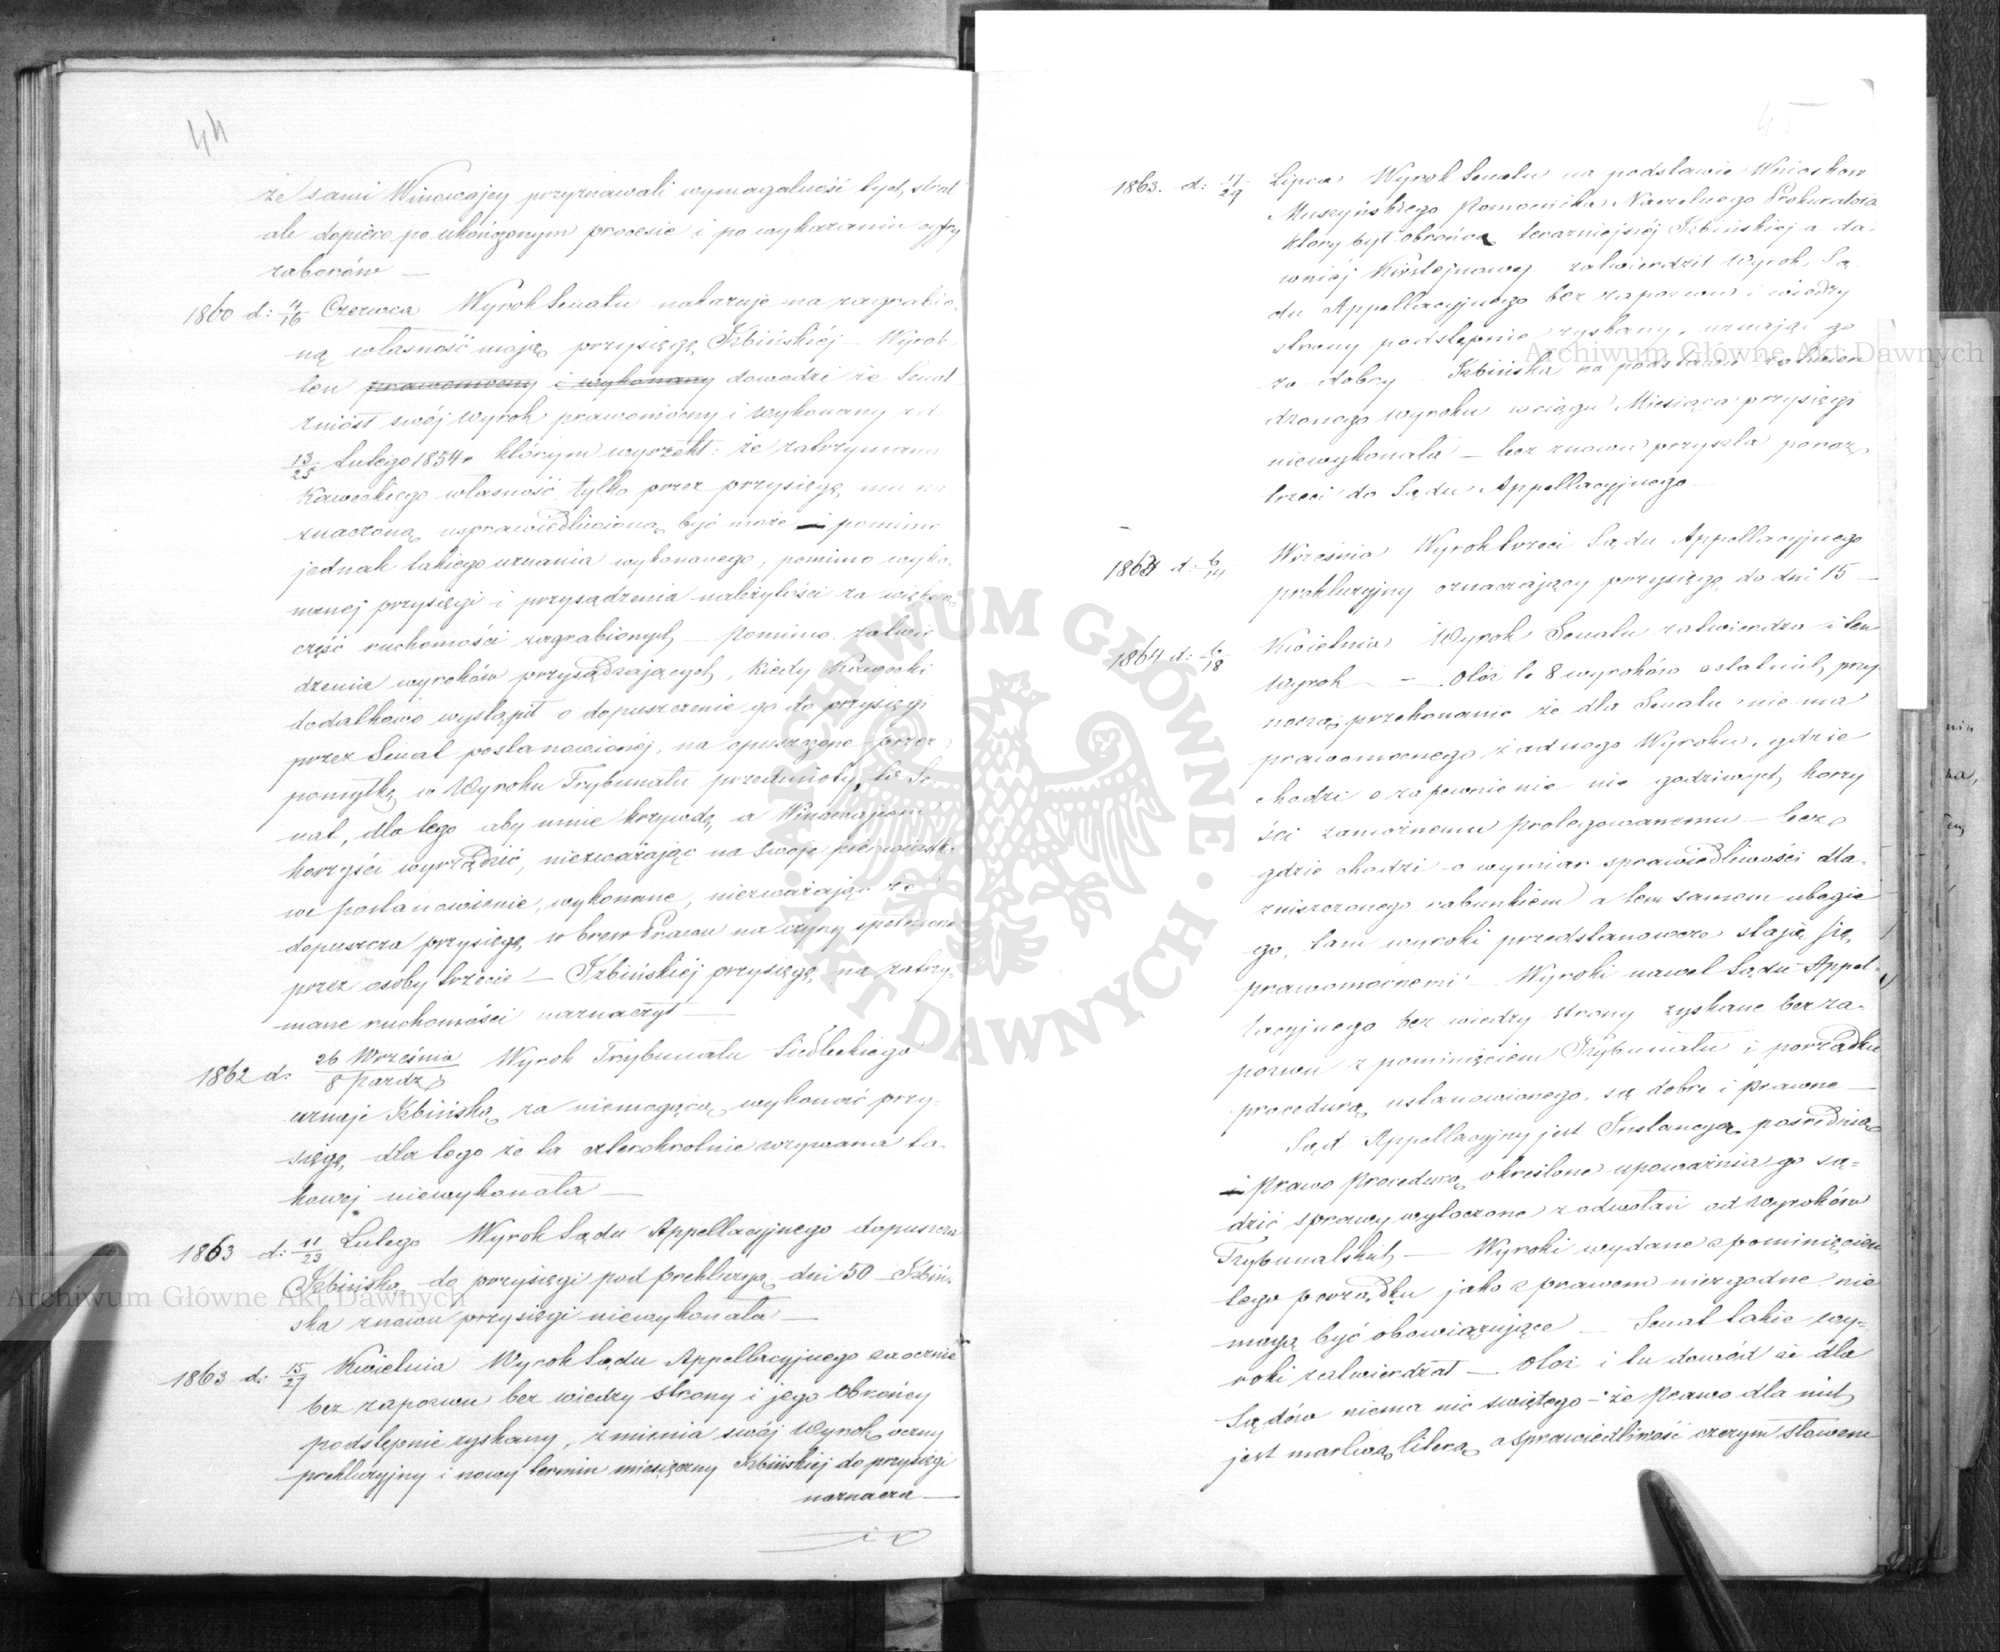 44
że sami Winowajcy przyznawali wymagalność tych strat
ale dopiero po ukończonym procesie i po wykazaniu cyfry
zaborów —
1860 d: 4/16 Czerwca Wyrok Senatu nakazuje na zagrabio-
ną własność moją przysięgę Izbińskiéj — Wyrok
ten prawomocny i wykonany dowodzi że Senat
zniósł swój wyrok prawomocny i wykonany z d.
13/25 Lutego 1854 r. którym wyrzekł: że zatrzymana
Kaweckiego własność tylko przez przysięgę mu na
znaczoną usprawiedliwioną być może — i pomimo
jednak takiego uznania wykonanego, pomimo wyko-
nanej przysięgi i przysądzenia należytości za większą
część ruchomości zagrabionych — pomimo zatwier
dzenia wyroków przysądzających, kiedy Kawecki
dodatkowo wystąpił o dopuszczenie go do przysięgi
przez Senat postanowionéj, na opuszczone przez
pomyłkę w Wyroku Trybunału przedmioty, to Se-
nat, dla tego aby mnie krzywdę a Winowajcom
korzyści wyrządzić, niezważając na swoje pierwiastko
we postanowienie, wykonane, niezważając że
dopuszcza przysięgę wbrew Prawu na czyny spełnione
przez osoby trzecie — Izbińskiéj przysięgę na zatrzy-
mane ruchomości naznaczył —
1862 d: 26 Września/8 Paźdz. Wyrok Trybunału Siedleckiego
uznaje Izbińską za niemogącą wykonać przy-
sięgę dla tego że ta czterokrotnie wzywana ta-
kowej niewykonała —
1863 d: 11/23 Lutego Wyrok Sądu Appellacyjnego dopuszcza
Izbińską do przysięgi pod prekluzyą dni 50 — Izbiń-
ska znowu przysięgi niewykonała —
1863 d: 15/27 Kwietnia Wyrok Sądu Appellacyjnego zaocznie
bez zapozwu bez wiedzy strony i jego Obrońcy
podstępnie zyskany, zmienia swój Wyrok oczny
prekluzyjny i nowy termin miesięczny Izbińskiej do przysięgi
naznacza —
45
1863. d: 17/29 Lipca Wyrok Senatu na podstawie Wniosków
Muszyńskiego Pomocnika Naczelnego Prokuratora
który był obrońcą terazniejszéj Izbińskiej a da-
wniéj Kirsztejnowej zatwierdził Wyrok Są
du Appellacyjnego bez zapozwu i wiedzy
strony podstępnie zyskany, uznając go
za dobry — Izbińska na podstawie zatwier
dzonego wyroku w ciągu Miesiąca przysięgi
niewykonała — lecz znowu przyszła poraz
trzeci do Sądu Appellacyjnego —
Września Wyrok trzeci Sądu Appellacyjnego
prekluzyjny oznaczający przysięgę do dni 15 —
1864 d: 6/18 Kwietnia Wyrok Senatu zatwierdza i ten
Wyrok — Otóż te 8 wyroków ostatnich przy
noszą przekonanie że dla Senatu nie ma
prawomocnego żadnego Wyroku, gdzie
chodzi o zapewnienie nie godziwych korzy
ści zamożnemu protegowanemu — lecz
gdzie chodzi o wymiar sprawiedliwości dla
zniszczonego rabunkiem a tem samem ubogie
go, tam wyroki przedstanowcze stają się
prawomocnemi — Wyroki nawet Sądu Appel-
lacyjnego bez wiedzy strony zyskane bez za-
pozwu z pominięciem Trybunału i porządku
procedurą ustanowionego, są dobre i prawne —
Sąd Appellacyjny jest Instancyą pośrednią
i Prawo Procedurą określone upoważnia go są-
dzić sprawy wytoczone z odwołań od Wyroków
Trybunalskich — Wyroki wydane z pominięciem
tego porządku jako z prawem niezgodne nie
mogą być obowiązujące — Senat takie wy-
roki zatwierdzał — Otóż i tu dowód że dla
Sądów niema nic świętego — że Prawo dla nich
jest martwą literą a sprawiedliwość czczym słowem
Archiwum Główne Akt Dawnych
Archiwum Główne Akt Dawnych
ARCHIWUM GŁÓWNE · AKT DAWNYCH ·